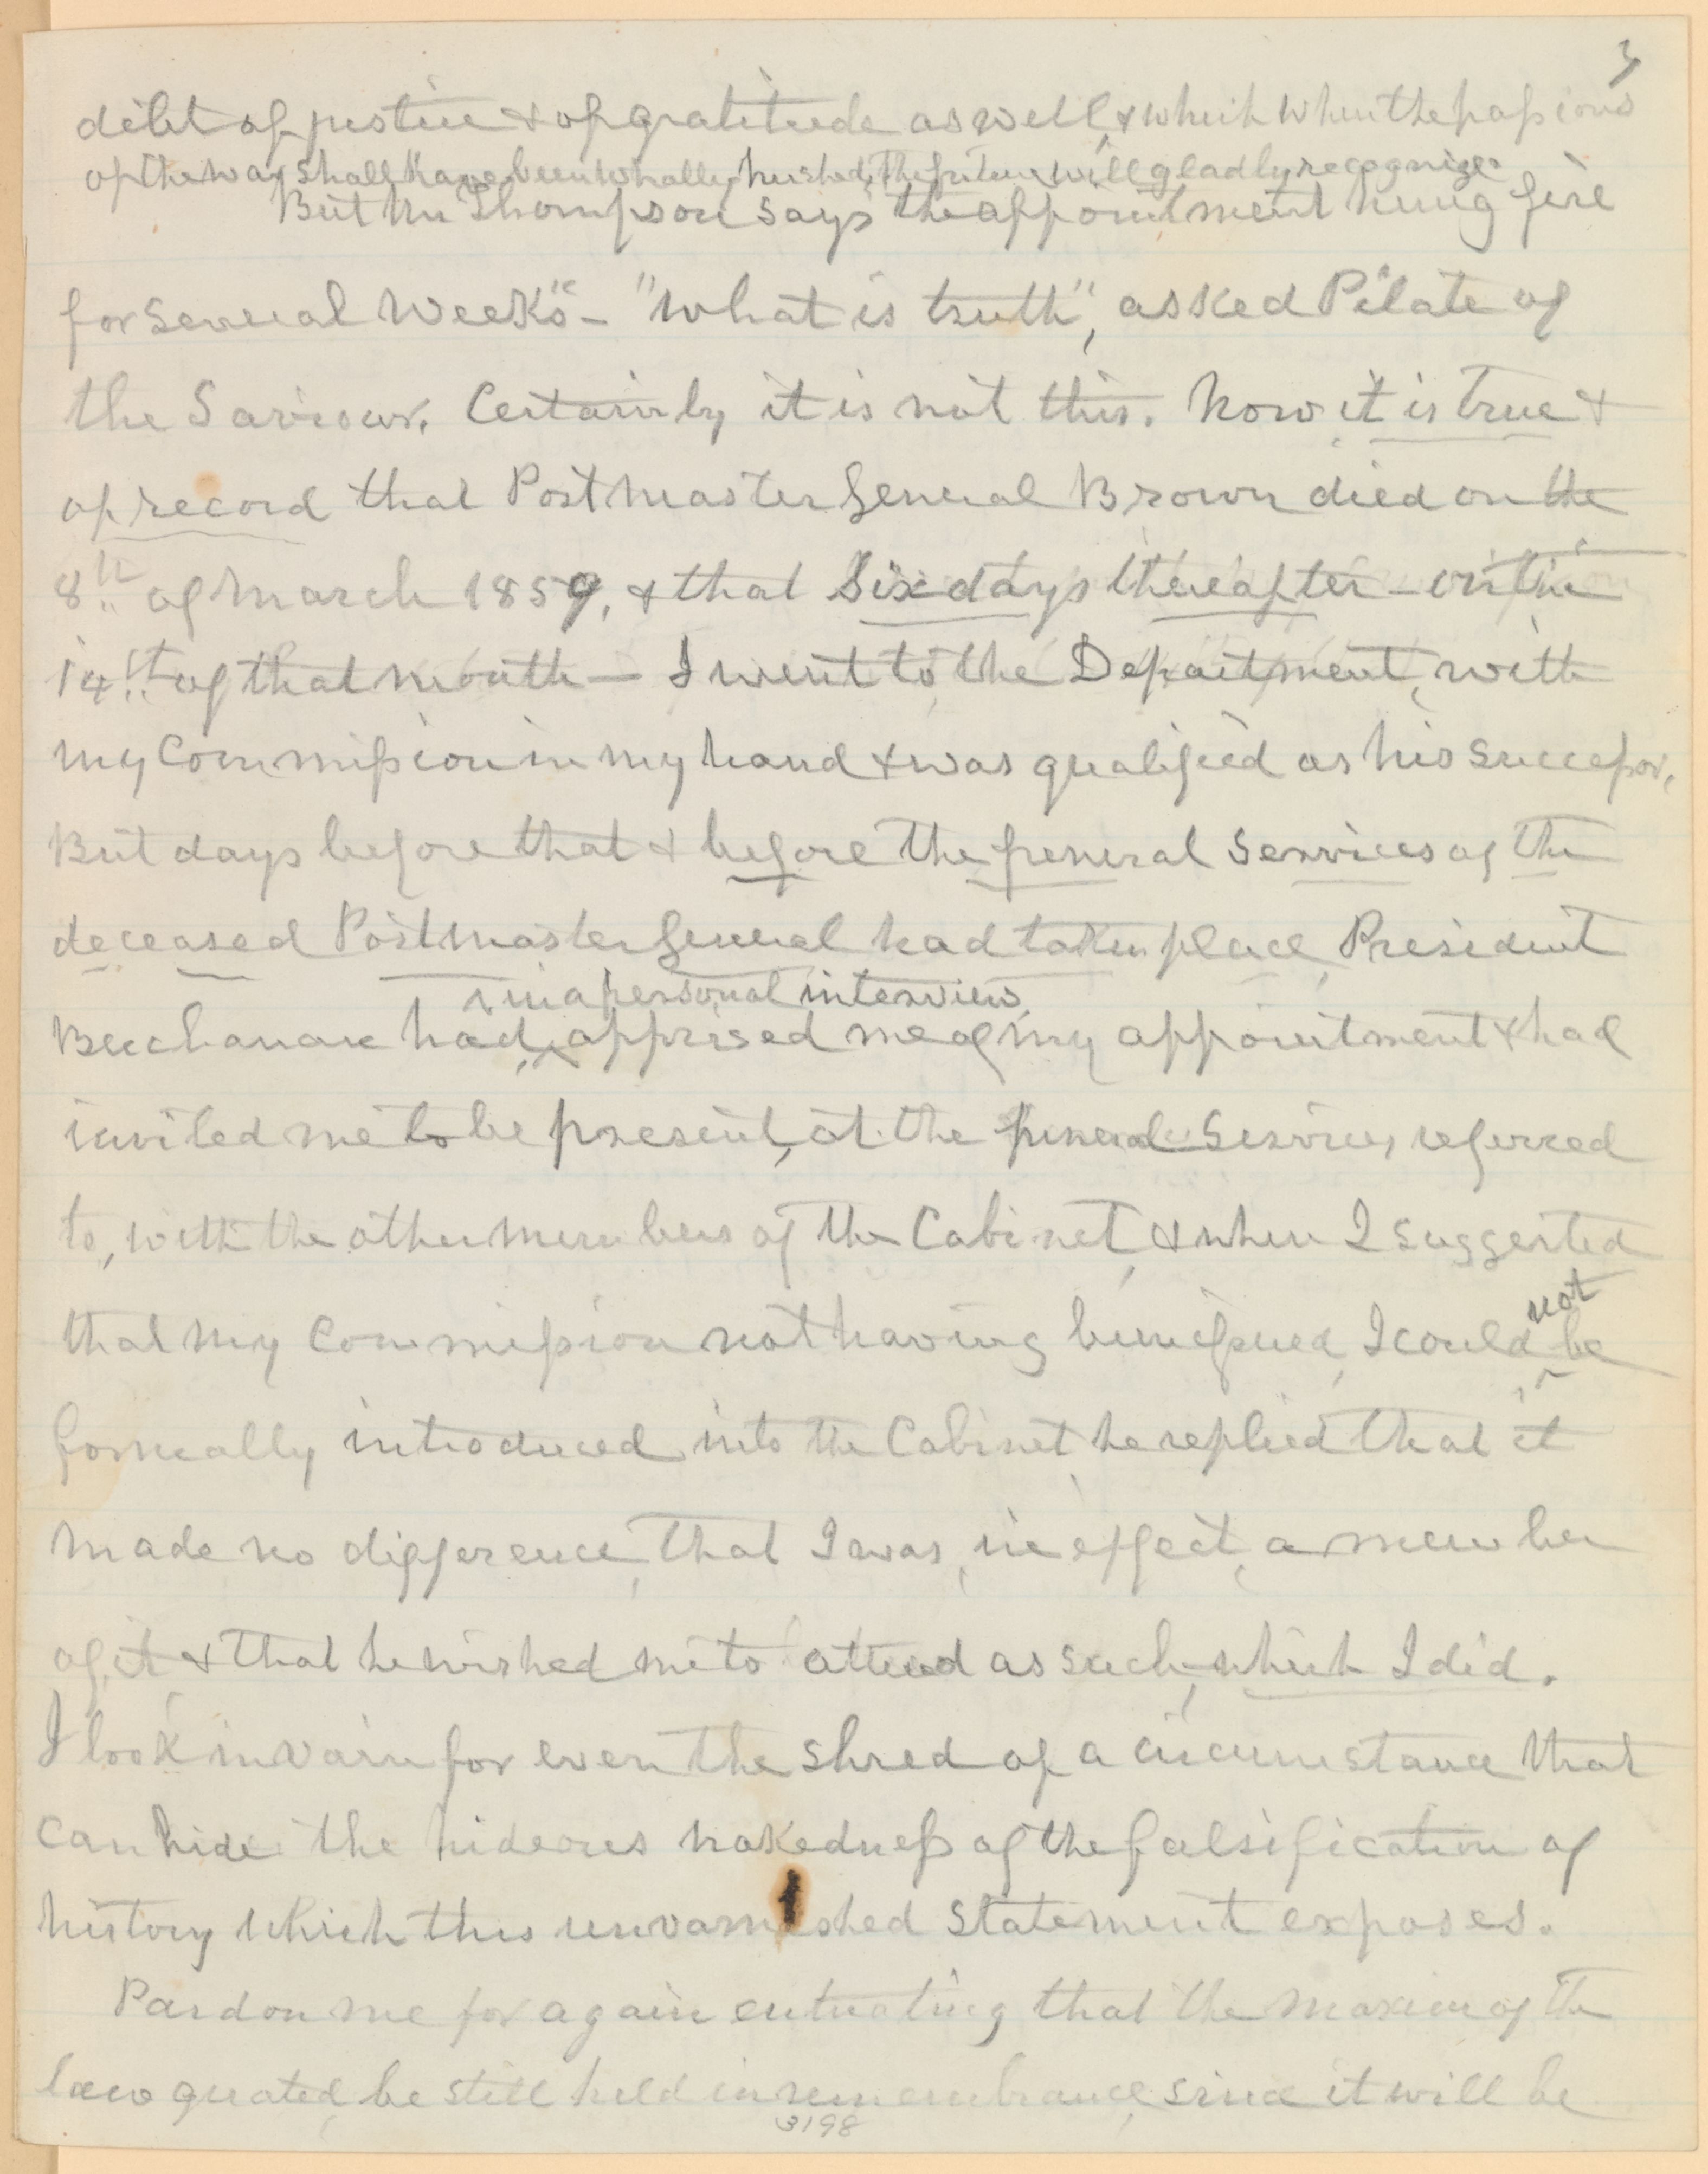 3
debt of justice & of gratitude as well, & which when the passions
of the war shall have been wholly hushed, the future will gladly recognize.
But Mr Thompson says "the appointment hung fire
for several weeks" - "What is truth", asked Pilate of
the Saviour. Certainly it is not this. Now it is true &
of record that Postmaster General Brown died on the
8th of March 1859, & that six days thereafter - on the
14th of that month - I went to the Department, with
my Commission in my hand & was qualified as his successor.
But days before that & before the funeral services of the
deceased Postmaster General had taken place, President
in a personal interview,
Buchanan had, apprised me of my appointment & had
invited me to be present, at the funeral services referred
to, with the other members of the Cabinet, & when I suggested
that my Commission not having been issued, I could not be
formally introduced into the Cabinet, he replied that it
made no difference, that I was, in effect, a member
of it & that he wished me to attend as such, which I did.
I look in vain for even the shred of a circumstance that
can hide the hideous nakedness of the falsification of
history which this unvarnished statement exposes.
Pardon me for again entreating that the maxim of the
law quoted, be still held in remembrance, since it will be
3198